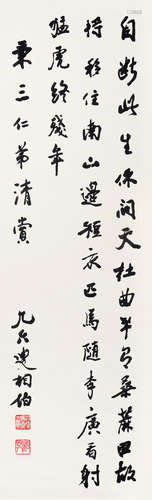 自断此生休问天杜曲幸有桑麻田故
将移住南山邊短衣匹馬随李廣看射
猛虎终殘年
秉三仁弟清賞
九人叟相伯